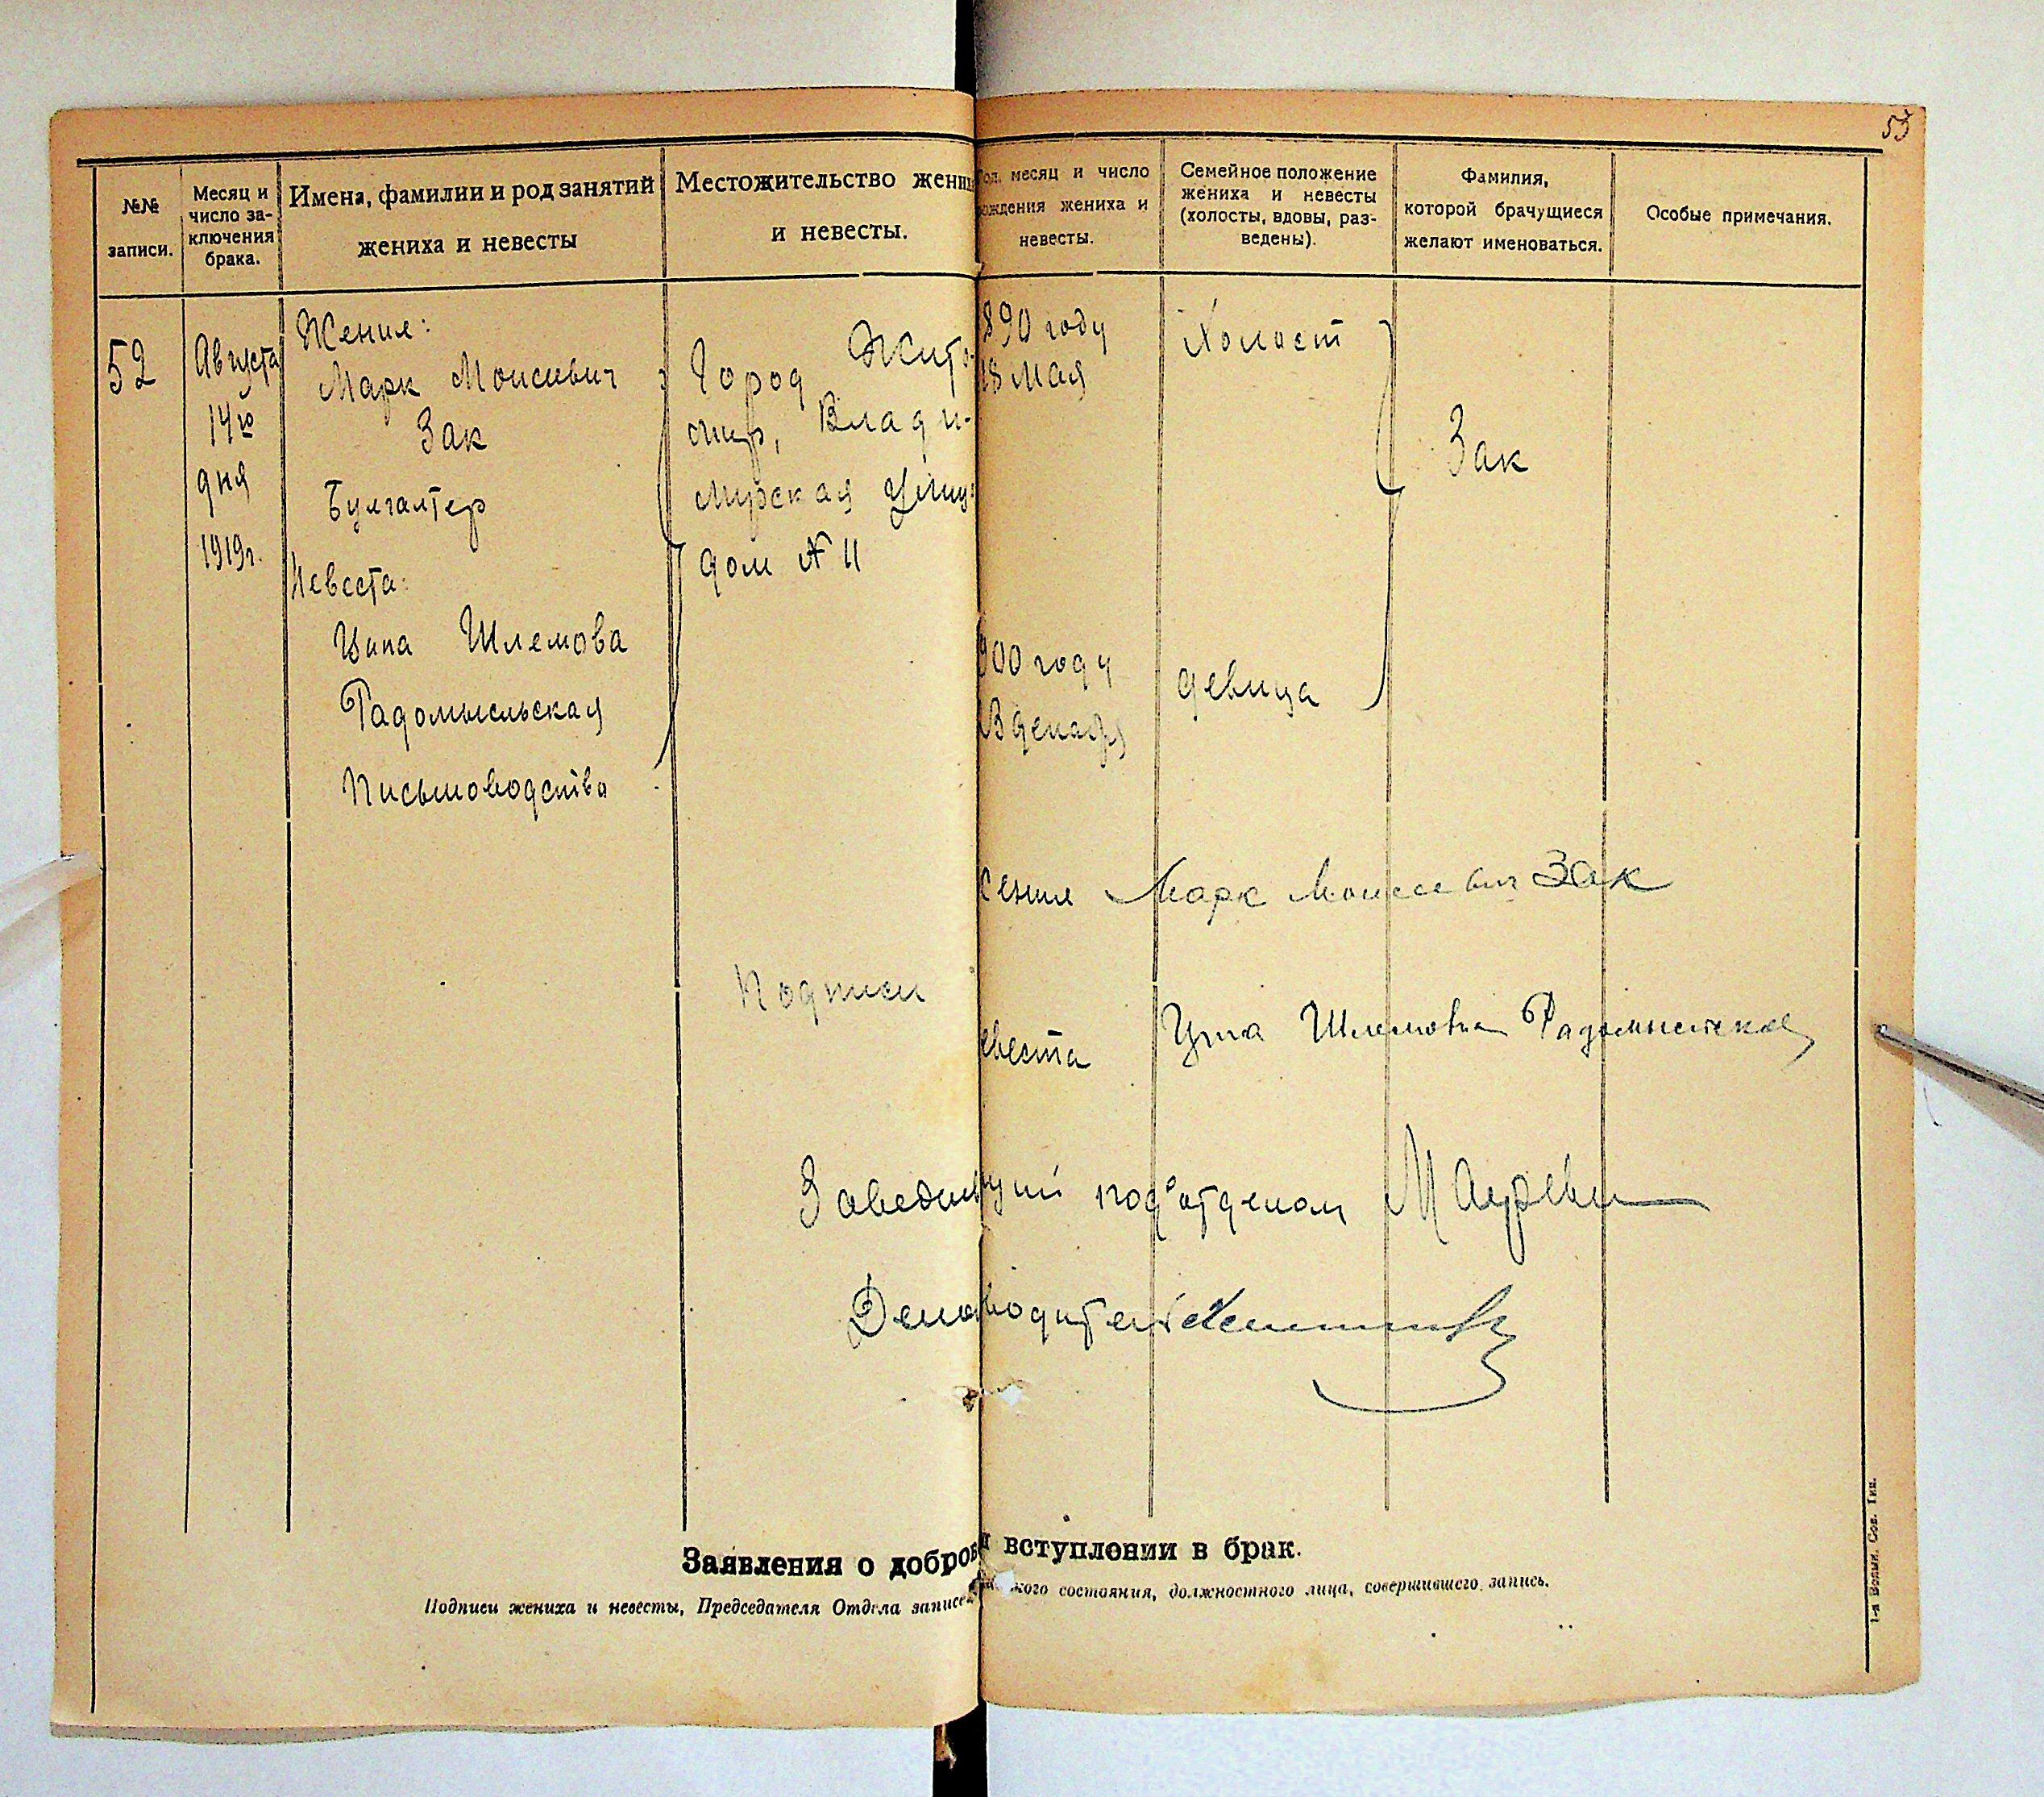 53
№№ записи.
Месяц и число заключения брака.
Имена, фамилии и род занятий
жениха и невесты
Местожительство жени
и невесты.
месяц и число
рождения жениха и
невесты.
Семейное положение
жениха и невесты
(холосты, вдовы, раз-
ведены).
Фамилия,
которой брачущиеся
желают именоваться.
Особые примечания.
52
Августа
14го
дня
1919г.
Жених:
Марк Моисеевич
Зак
Бухгалтер
Невеста:
Ципа Шлемова
Радомысльская
Письмоводства
Город Жито-
мир, Влади-
мирская улиц
дом № 11
890 году
18 мая
900 году
декабр
Холост
девица
Зак
Подписи
жених Марк Моисеевич Зак
евеста Ципа Шлемовна Радомысльская
Заведывующий под'отделом
Деловодитель
Заявления о добров
и вступлении в брак.
Подписи жениха и невесты, Председателя Отдела записе
кого состояния, должностного лица, совершившего запись.
1-я Волын. Сов. Тип.